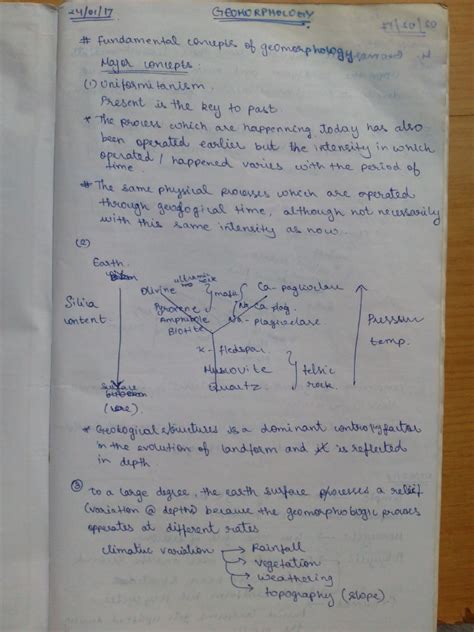 24/01/17
GEOMORPHOLOGY
# Fundamental concepts of geomorphology
Major concepts:
(1) Uniformitanism.
Present is the key to past.
* The process which are happenning today has also
been operated earlier but the intensity in which
operated / happened varies with the period of
time.
* The same physical processes which are operated
through geological time, although not necessarily
with this same intensity as now...
(2)
Earth
Olivine
ultramafic
rock
mafic
Ca - plagioclase
Silia
content
Pyroxene
Na Ca plag.
Amphibole
Na - plagioclase
Biotite
Pressure
temp.
K - fledspar
Muscovite
felsic
rock.
Quartz
Surface
(core)
* Geological structures is a dominant controly factor
in the evolution of landform and it is reflected
in depth
(3) To a large degree, the earth surface processes a relief
(variation @ depth) because the geomorphologic process
opperates at different rates
climatic variation → Rainfall
→ vegetation
→ weathering
→ topography (slope)